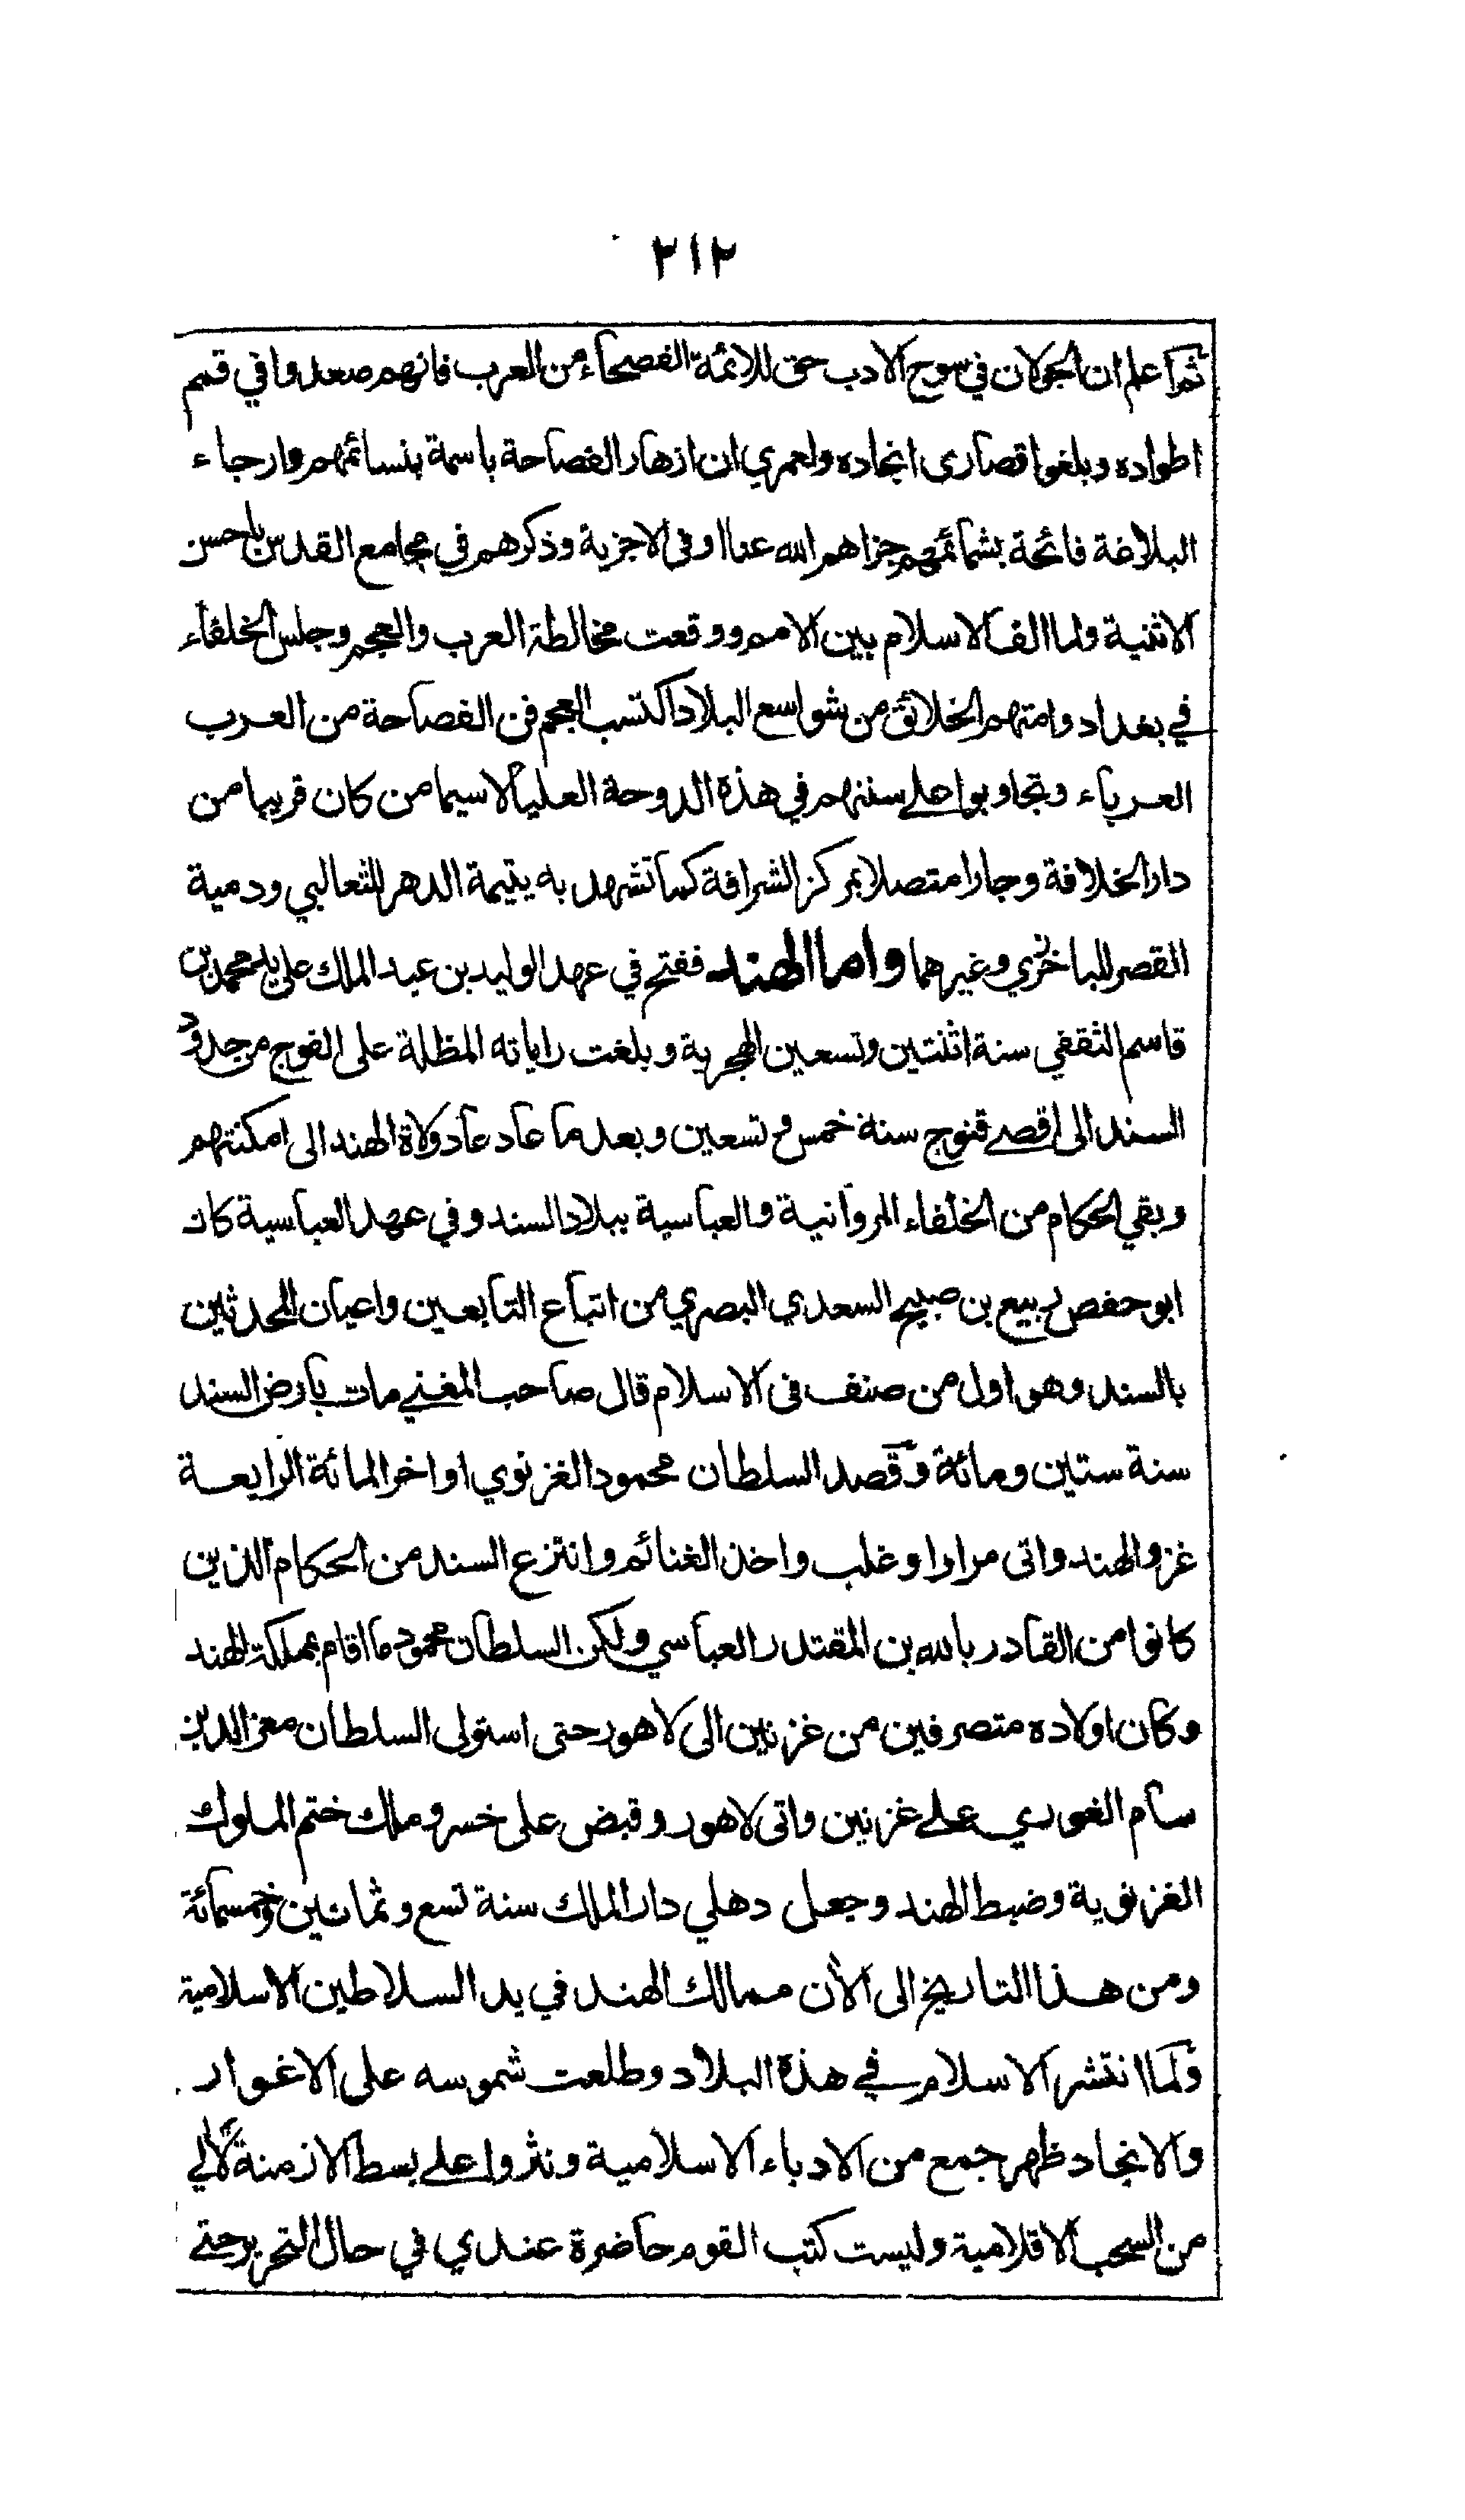 ٢١٢
ثم اعلم ان الجولان في سوح الادب حق للائمة الفصحاء من العرب فانهم صعدوا في قمم
اطواده وبلغوا قصارى انجاده ولعمري ان ازهار الفصاحة باسمة بنسائمهم وارجاء
البلاغة فائحة بشمائمهم جزاهم الله عنا اوفى الاجزية وذكرهم في مجامع القدس باحسن
الاثنية ولما الف الاسلام بين الامم ووقعت مخالطة العرب والعجم وجلس الخلفاء
في بغداد وامتهم الخلائق من شواسع البلاد اكتسب العجم فن الفصاحة من العرب
العرباء وتجاوبوا على سننهم في هذه الدوحة العليا لاسيما من كان قريبا من
دار الخلافة وجارا متصلا بمركز الشرافة كما تشهد به يتيمة الدهر للثعالبي ودمية
القصر للباخرزي وغيرهما واما الهند ففتح في عهد الوليد بن عبد الملك على يد محمد بن
قاسم الثقفي سنة اثنتين وتسعين الهجرية وبلغت راياته المظلة على الفوج من حدود
السند الى اقصے قنوج سنة خمس و تسعين وبعد ما عاد عاد ولاة الهند الى امكنتهم
وبقي الحكام من الخلفاء المروانية والعباسية ببلاد السند وفي عهد العباسية كان
ابو حفص ربيع بن صبيح السعدي البصري من اتباع التابعين واعيان المحدثين
بالسند وهو اول من صنف فى الاسلام قال صاحب المغني مات بارض السند
سنة ستين ومائة وقصد السلطان محمود الغزنوي اواخر المائة الرابعة
غزو الهند واتى مرارا وغلب واخذ الغنائم وانتزع السند من الحكام الذين
كانوا من القادر بالله بن المقتدر العباسي ولكن السلطان محمود ما اقام بمملكة الهند
وكان اولاده متصرفين من غزنين الى لاهور حتى استولى السلطان معز الدين
سام الغوري علے غزنين واتى لاهور وقبض على خسرو ملك ختم الملوك
الغزنوية وضبط الهند وجعل دهلي دار الملك سنة تسع وثمانين وخمسمائة
ومن هذا التاريخ الى الأن ممالك الهند في يد السلاطين الاسلامية
ولما انتشر الاسلام في هذه البلاد وطلعت شموسه على الاغوار
والانجاد ظهر جمع من الادباء الاسلامية ونثروا علے بسط الازمنة لألي
من السحب الاقلامية وليست كتب القوم حاضرة عندي في حال التحرير حتے